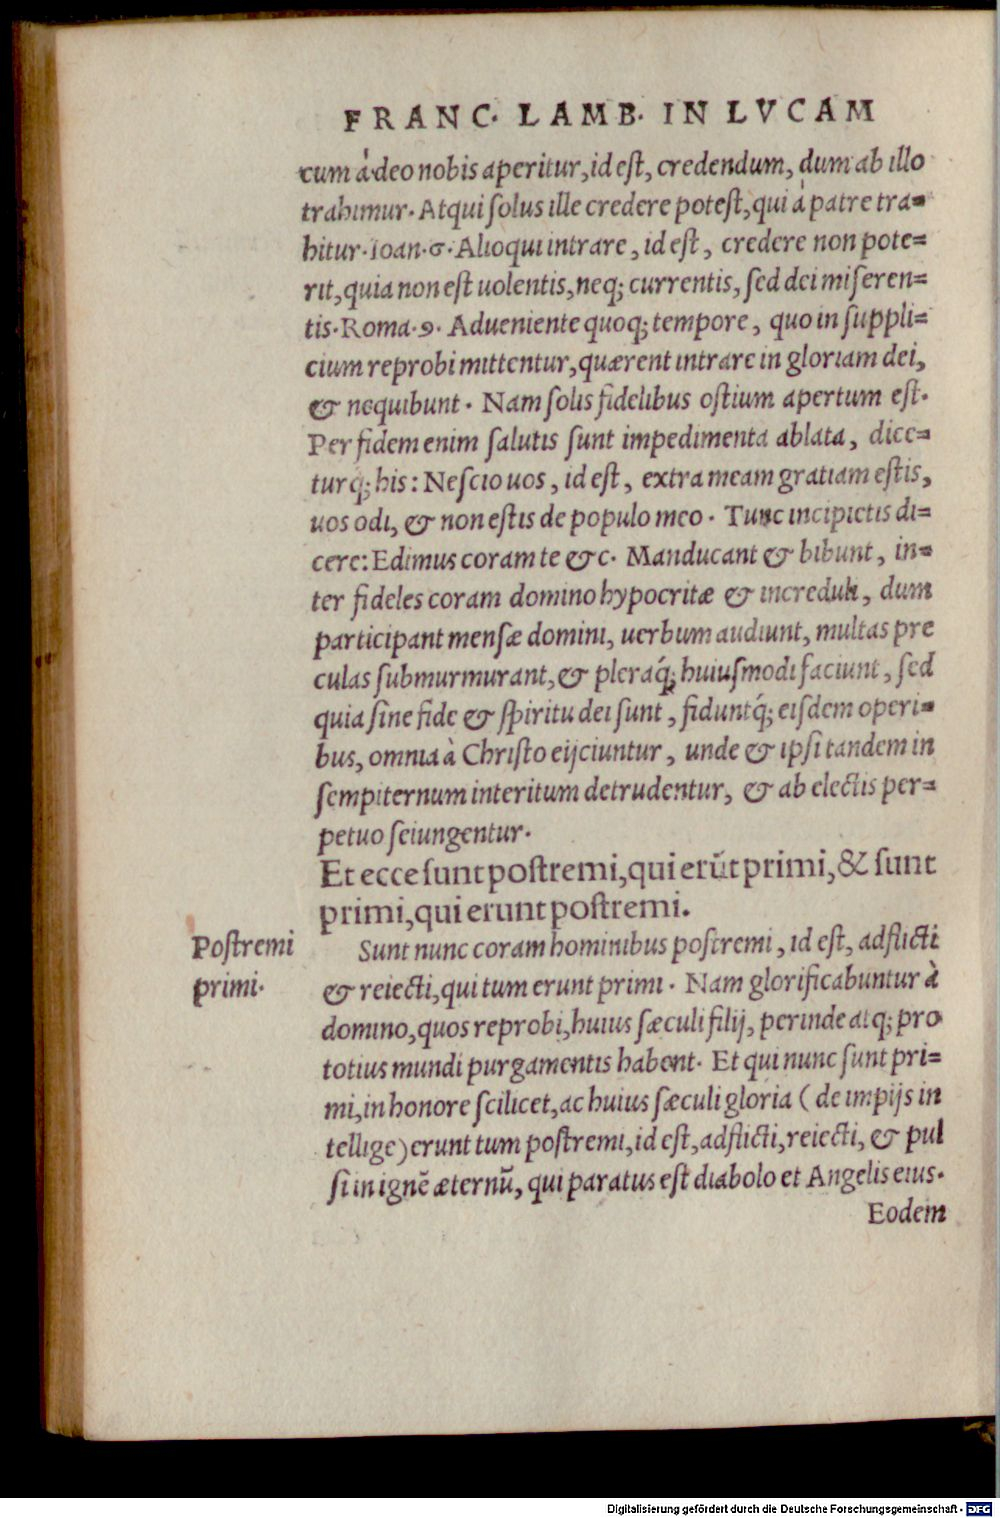 FRANC. LAMB. IN LVCAM
cum à deo nobis aperitur, id est, credendum, dum ab illo
trahimur. Atqui solus ille credere potest, qui à patre tra=
hitur. Ioan. 6. Alioqui intrare, id est, credere non pote=
rit, quia non est uolentis, neq; currentis, sed dei miseren=
tis. Roma. 9. Adueniente quoq; tempore, quo in suppli=
cium reprobi mittentur, quærent intrare in gloriam dei,
& nequibunt. Nam solis fidelibus ostium apertum est.
Per fidem enim salutis sunt impedimenta ablata, dice=
turq; his: Nescio uos, id est, extra meam gratiam estis,
uos odi, & non estis de populo meo. Tunc incipietis di=
cere: Edimus coram te &c. Manducant & bibunt, in=
ter fideles coram domino hypocritæ & increduli, dum
participant mensæ domini, uerbum audiunt, multas pre
culas submurmurant, & pleraq́; huiusmodi faciunt, sed
quia sine fide & spiritu dei sunt, fiduntq́; eisdem operi=
bus, omnia à Christo eijciuntur, unde & ipsi tandem in
sempiternum interitum detrudentur, & ab electis per=
petuo seiungentur.
Et ecce sunt postremi, qui erūt primi, & sunt
primi, qui erunt postremi.
Postremi
primi.
Sunt nunc coram hominibus postremi, id est, adflicti
& reiecti, qui tum erunt primi. Nam glorificabuntur à
domino, quos reprobi, huius sæculi filij, perinde atq; pro
totius mundi purgamentis habent. Et qui nunc sunt pri=
mi, in honore scilicet, ac huius sæculi gloria (de impijs in
tellige) erunt tum postremi, id est, adflicti, reiecti, & pul
si in ignē æternū, qui paratus est diabolo et Angelis eius.
Eodem
Digitalisierung gefördert durch die Deutsche Forschungsgemeinschaft - DFG